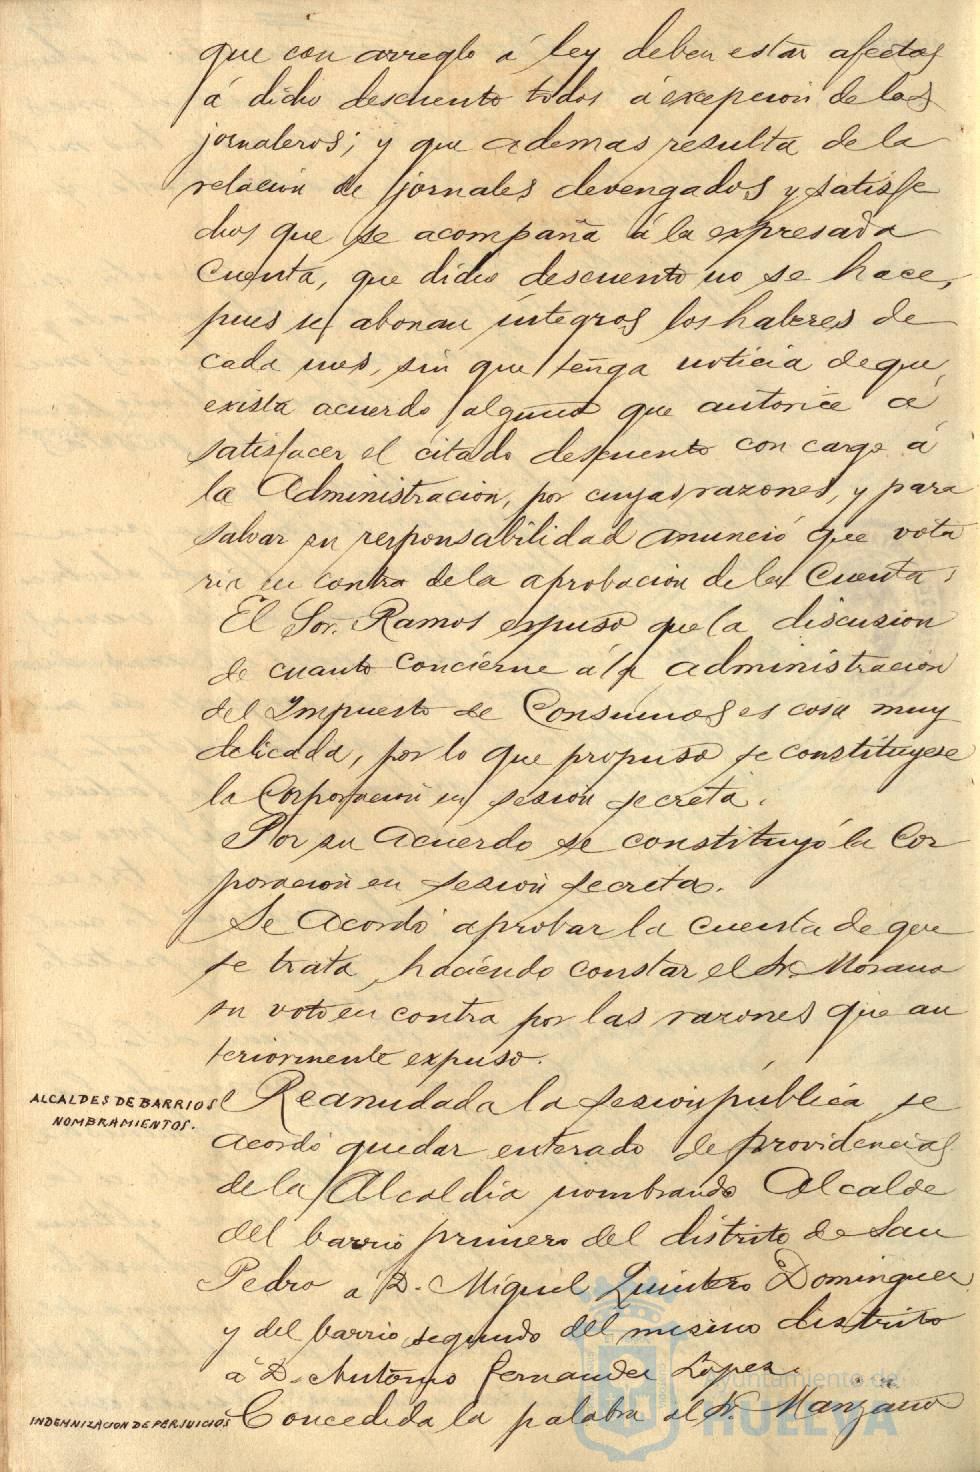 que con arreglo á ley deben estar afectos
á dicho descuento todos á excepcion de los
jornaleros; y que ademas resulta de la
relacion de jornales devengados y satisfe
chos que se acompaña á la expresada
Cuenta, que dicho descuento no se hace,
pues se abonan integros los haberes de
cada mes, sin que tenga noticia de que
exista acuerdo alguno que autorice á
satisfacer el citado descuento con cargo á
la Administracion, por cuyas razones, y para
salvar su responsabilidad anunció que vota
ria en contra de la aprobacion de la Cuenta.
El Sor. Ramos expuso que la discusion
de cuanto concierne á la administracion
del Impuesto de Consumos es cosa muy
delicada, por lo que propuso se constituyese
la Corporacion en sesion secreta.
Por su acuerdo se constituyó la Cor
poracion en sesion secreta.
Se acordó aprobar la cuenta de que
se trata, haciendo constar el Sr. Morano
su voto en contra por las razones que an
teriormente expuso.
ALCALDES DE BARRIOS
NOMBRAMIENTOS.
Reanudada la sesion pública se
acordó quedar enterado de providencias
de la Alcaldia nombrando Alcalde
del barrio primero del distrito de San
Pedro a D. Miguel Quintero Dominguez
y del barrio segundo del mismo distrito
á D. Antonio Fernandez Lopez.
INDEMNIZACION DE PERJUICIOS
Concedida la palabra al Sr. Manzano
Ayuntamiento de
HUELVA